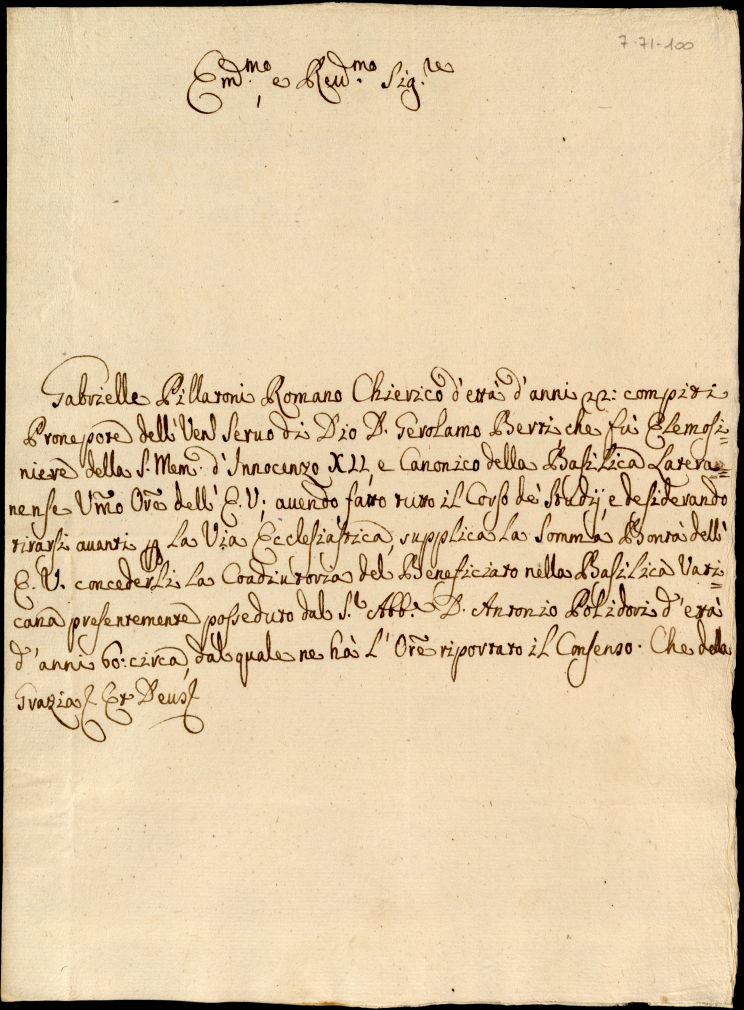 7-71-100
Em.mo e Reud.mo Sig.re
Gabrielle Pillaroni Romano Chierico d'età d'anni 22: compiti
Pronepote dell Ven.l Seruo di Dio D. Gerolamo Berti che fù Elemosi=
niere della S. Mem. d'Innocenzo XII, e Canonico della Basilica Latera=
nense Vmo Ore dell' E. V; auendo fatto tutto il Corso de' Studij, e desiderando
tirarsi auanti p La Via Ecclesiastica, supplica La Somma Bontà dell'
E. V. concederli La Coadiutoria del Beneficiato nella Basilica Vati=
cana presentemente posseduto dal S.r Abb.e D. Antonio Polidori d'età
d'anni 60: circa, dal quale ne hà L' Ore riportato il Consenso. Che della
Grazia Et Deus